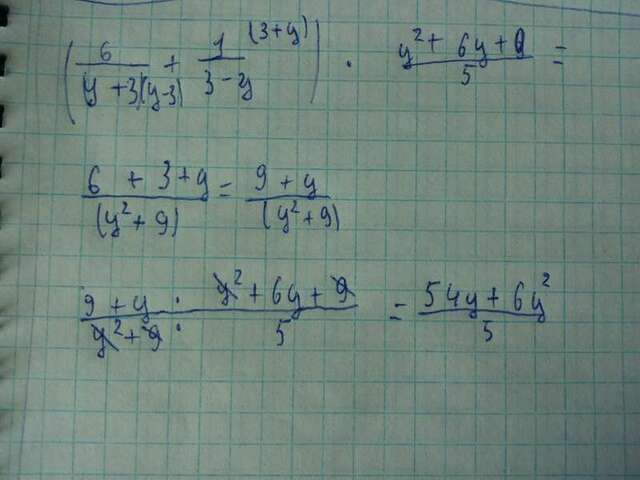 (6/(y+3)(y-3) + 1/(3-y) (3+y)) · (y² + 6y + 9)/5 =
(6 + 3+y)/(y² + 9) = (9 + y)/(y² + 9)
(9 + y)/(y² + 9) : (y² + 6y + 9)/5 = (54y + 6y²)/5